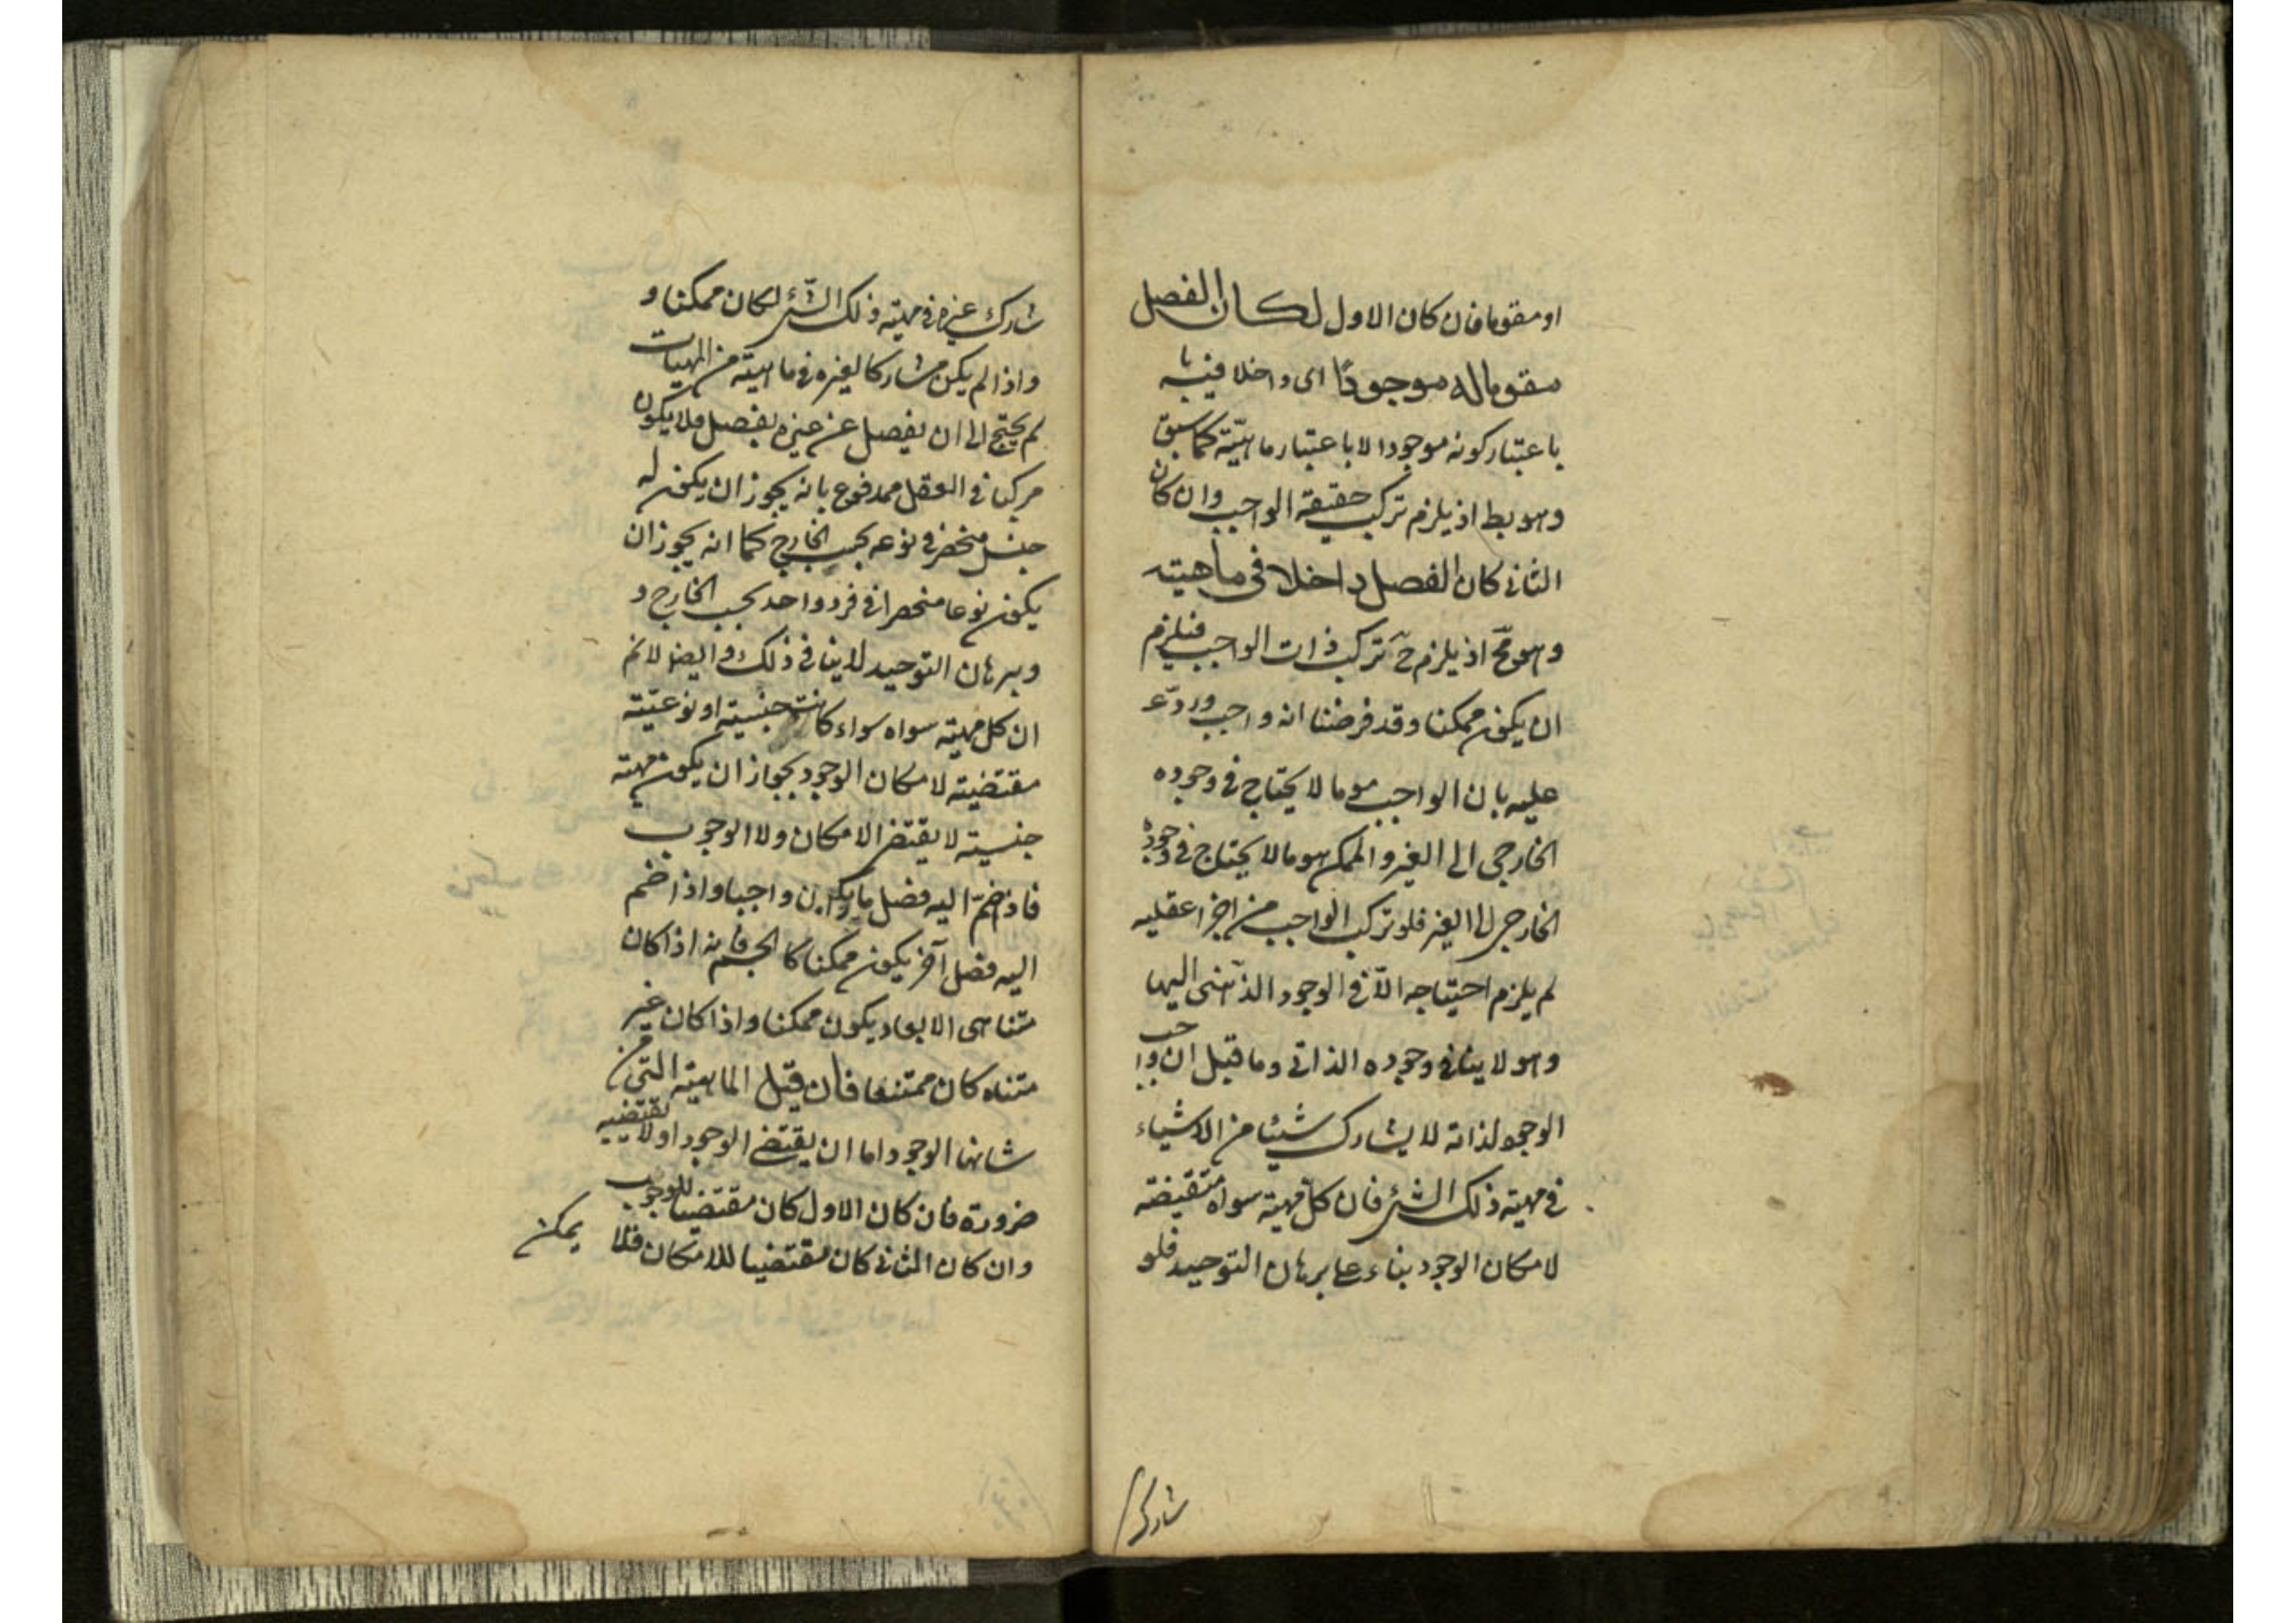 او مقوما فان كان الاول لكان الفصل
مقوما له موجودًا اى داخلا فيه
باعتبار كونه موجودا لا باعتبار ماهيّته كما سبق
وهو بط اذ يلزم تركب حقيقة الواجب وان كان
الثانى كان الفصل داخلا فى ماهيته
وهو مح اذ يلزم ح تركب ذات الواجب فيلزم
ان يكون ممكنا وقد فرضنا انه واجب ورد
عليه بان الواجب هو ما لا يحتاج فى وجوده
الخارجى الى الغير والممكن هو ما لا يحتاج فى وجوده
الخارجى الى الغير فلو تركب الواجب من اجزا عقليه
لم يلزم احتياجه الّا فى الوجود الذهنى اليها
وهو لا ينافى وجوده الذاتى وما قيل ان واجب
الوجو لذاته لا يشارك شيئا من الاشياء
فى مهية ذلك الشئ فان كلّ مهية سواه مقتضية
لامكان الوجود بناء على برهان التوحيد فلو
شارك
شارك غيره فى مهيته ذلك الشّئ لكان ممكنا و
واذا لم يكن مشاركا لغيره فى ماهيته من المهيات
لم يحتج الى ان يفصل عن غيره بفصل فلا يكون
مركبا فى العقل فمدفوع بانه يجوز ان يكون له
جنس منحصر فى نوعه بحسب الخارج كما انه يجوز ان
يكون نوعا منحصرا فى فرد واحد بحسب الخارج و
وبرهان التوحيد لا ينافى ذلك وايضا لا نم
ان كل مهية سواه سواء كانت جنسية او نوعيّته
مقتضية لامكان الوجود بجواز ان يكون مهته
جنسية لا يقتضى الامكان ولا الوجوب
فاذا ضمّ اليه فصل ما يكون واجبا واذا ضم
اليه فصل آخر يكون ممكنا كالجسم فانه اذا كان
متناهى الابعاد يكون ممكنا واذا كان غير
متناه كان ممتنعا فان قيل الماهيته التى من
شانها الوجود اما ان يقتضى الوجود اولا يقتضيه
ضرورة فان كان الاول كان مقتضيا للوجوب
وان كان الثانى كان مقتضيا للامكان فلا يمكن